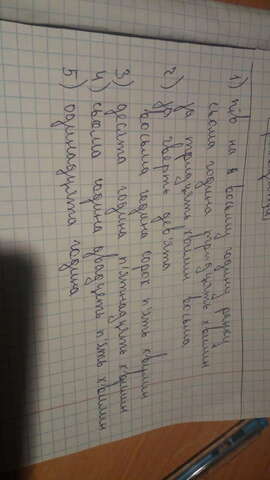 1) пів на восьму годину ранку
сьома година тридцять хвилин
за тридцять хвилин восьма
2) за чверть дев'ята
восьма година сорок п'ять хвилин
3) десята година п'ятнадцять хвилин
4) сьома година двадцять п'ять хвилин
5) одинадцята година